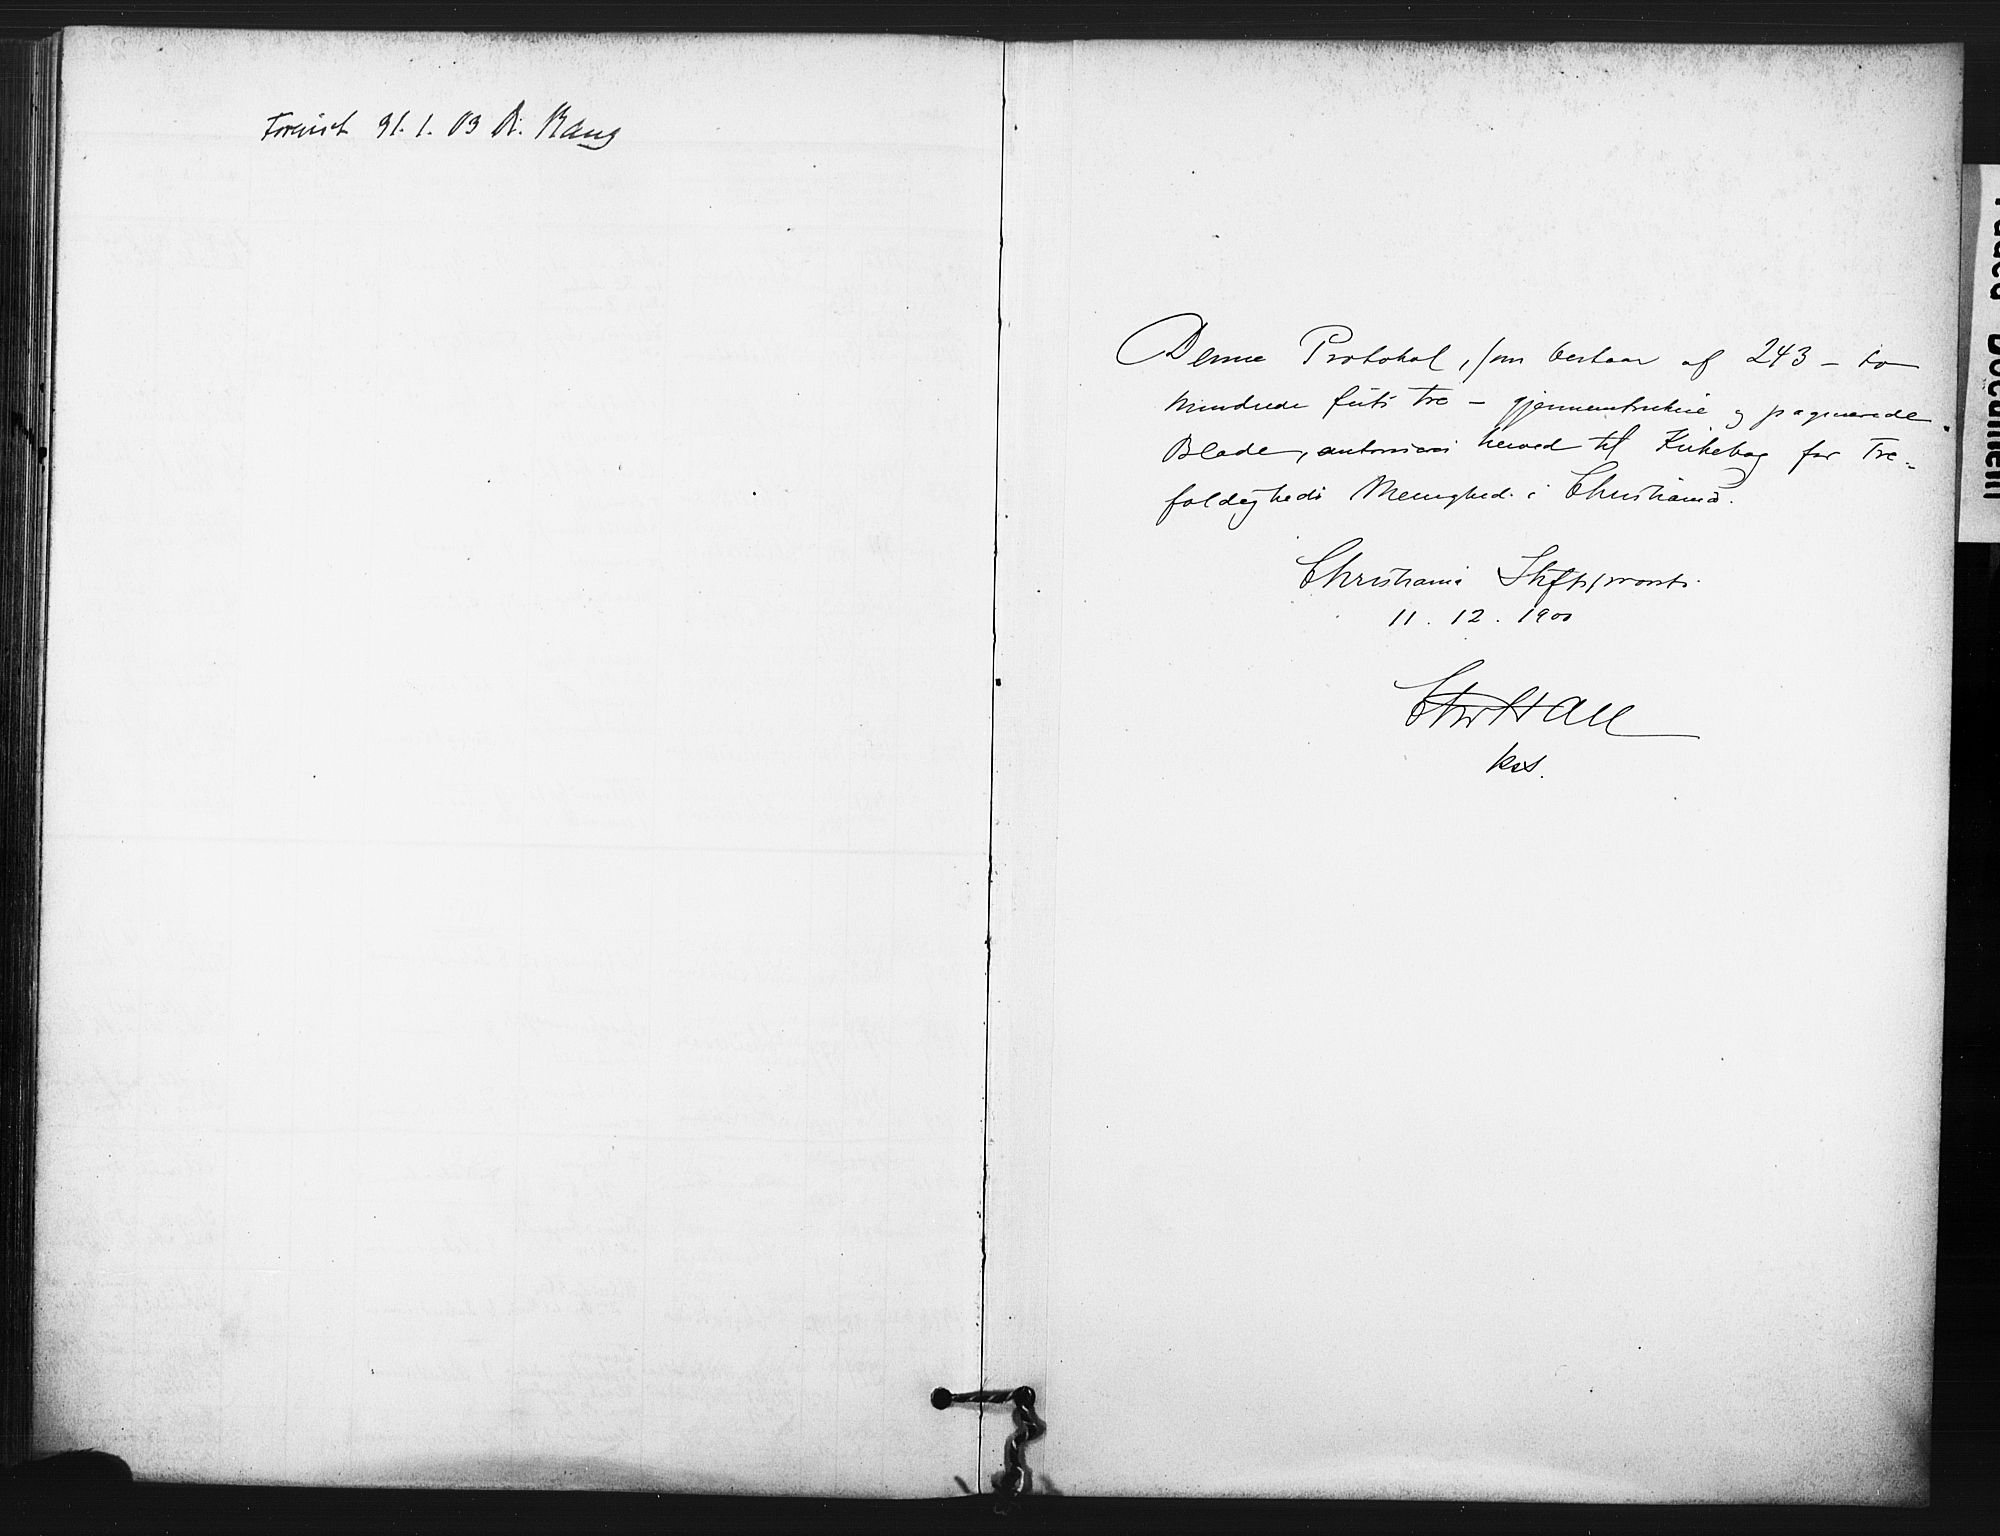 Forevist 31.1.03 A. Bang
Denne Protokol, som bestaar af 243 – to
hundrede firti tre – gjennemtrukne og paginerede
Blade, autoriseres herved til Kirkebog for Tre-
foldigheds Menighed i Christiania.
Christiania Stiftsprovsti
11. 12. 1900
Chr Hall
kst.